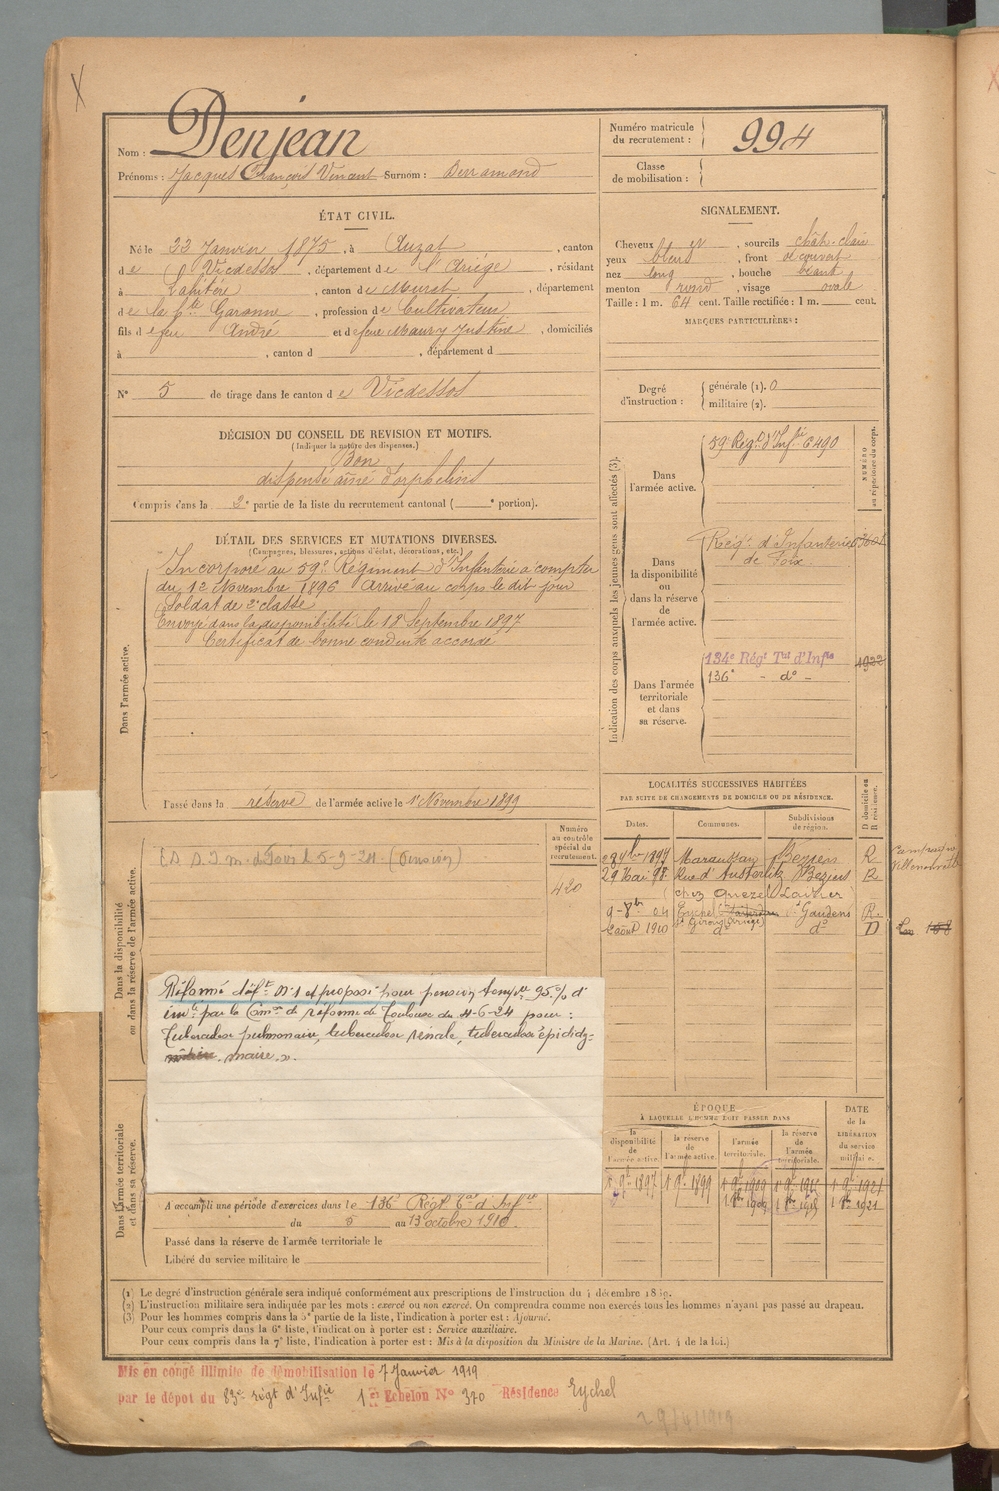 Nom : Denjean
Prénoms : Jacques François Vincent Surnom : Derramond
Numéro matricule du recrutement : 994
Classe de mobilisation :
ÉTAT CIVIL.
Né le 22 Janvier 1875, à Auzat, canton
de Vicdessos, département de l'Ariège, résidant
à Lahitère, canton de Murat, département
de la Hte Garonne, profession de Cultivateur
fils de feu André et de feue Maury Justine, domiciliés
à , canton d , département d
N° 5 de tirage dans le canton de Vicdessos
SIGNALEMENT.
Cheveux , sourcils chât. clair
yeux bleus, front découvert
nez long, bouche
menton rond, visage ovale
Taille : 1 m. 64 cent. Taille rectifiée : 1 m. cent.
MARQUES PARTICULIÈRES :
Degré d'instruction :
générale (1). 0
militaire (2).
DÉCISION DU CONSEIL DE REVISION ET MOTIFS.
(Indiquer la nature des dispenses.)
Bon
dispensé aîné d'orphelins
Compris dans la 2e partie de la liste du recrutement cantonal ( e portion).
DÉTAIL DES SERVICES ET MUTATIONS DIVERSES.
(Campagnes, blessures, actions d'éclat, décorations, etc.)
Dans l'armée active.
Incorporé au 59e Régiment d'Infanterie à compter
du 12 Novembre 1896 Arrivé au corps le dit jour
Soldat de 2e classe
Envoyé dans la disponibilité le 18 Septembre 1897
Certificat de bonne conduite accordé
Passé dans la réserve de l'armée active le 1er Novembre 1899
Indication des corps auxquels les jeunes gens sont affectés (3).
NUMÉRO au répertoire du corps.
Dans l'armée active.
59e Régt d'Infie 6490
Dans la disponibilité ou dans la réserve de l'armée active.
Régt d'Infanterie
de Foix
Dans l'armée territoriale et dans sa réserve.
134e Régt Tal d'Infie 1922
136e - do -
Dans la disponibilité ou dans la réserve de l'armée active.
Numéro au contrôle spécial du recrutement.
420
Réformé déft n°1 et proposé pour pension temporre 95% d'
invté par la Comon de réforme de Toulouse du 4-6-24 pour :
Tuberculose pulmonaire, tuberculose rénale, tuberculose épididy-
maire.
LOCALITÉS SUCCESSIVES HABITÉES
PAR SUITE DE CHANGEMENTS DE DOMICILE OU DE RÉSIDENCE.
D domicile ou R résidence.
Dates. Communes. Subdivisions de région.
28 9bre 1897 Maraussan Béziers R
29 Mai 98 Rue d'Austerlitz Béziers R
(chez Quezel Laurier)
9-8bre 04 Eychel St Gaudens R.
6 août 1910 St Girons (Ariège) do D
Dans l'armée territoriale et dans sa réserve.
A accompli une période d'exercices dans le 136e Régt Tal d'Infie
du 5 au 13 octobre 1910
Passé dans la réserve de l'armée territoriale le
Libéré du service militaire le
ÉPOQUE
À LAQUELLE L'HOMME DOIT PASSER DANS
DATE de la LIBÉRATION du service militaire.
la disponibilité de l'armée active. la réserve de l'armée active. l'armée territoriale. la réserve de l'armée territoriale.
1 9e 1897 1 9e 1899 1 9e 1909 1 9e 1915 1 9e 1921
1 8bre 1909 1 8bre 1915 1 8bre 1921
(1) Le degré d'instruction générale sera indiqué conformément aux prescriptions de l'instruction du 4 décembre 1889.
(2) L'instruction militaire sera indiquée par les mots : exercé ou non exercé. On comprendra comme non exercés tous les hommes n'ayant pas passé au drapeau.
(3) Pour les hommes compris dans la 5e partie de la liste, l'indication à porter est : Ajourné.
Pour ceux compris dans la 6e liste, l'indication à porter est : Service auxiliaire.
Pour ceux compris dans la 7e liste, l'indication à porter est : Mis à la disposition du Ministre de la Marine. (Art. 4 de la loi.)
Mis en congé illimité de démobilisation le 7 Janvier 1919
par le dépot du 83e régt d'Infie 1er Echelon N° 370 Résidence Eychel
29/4/1919